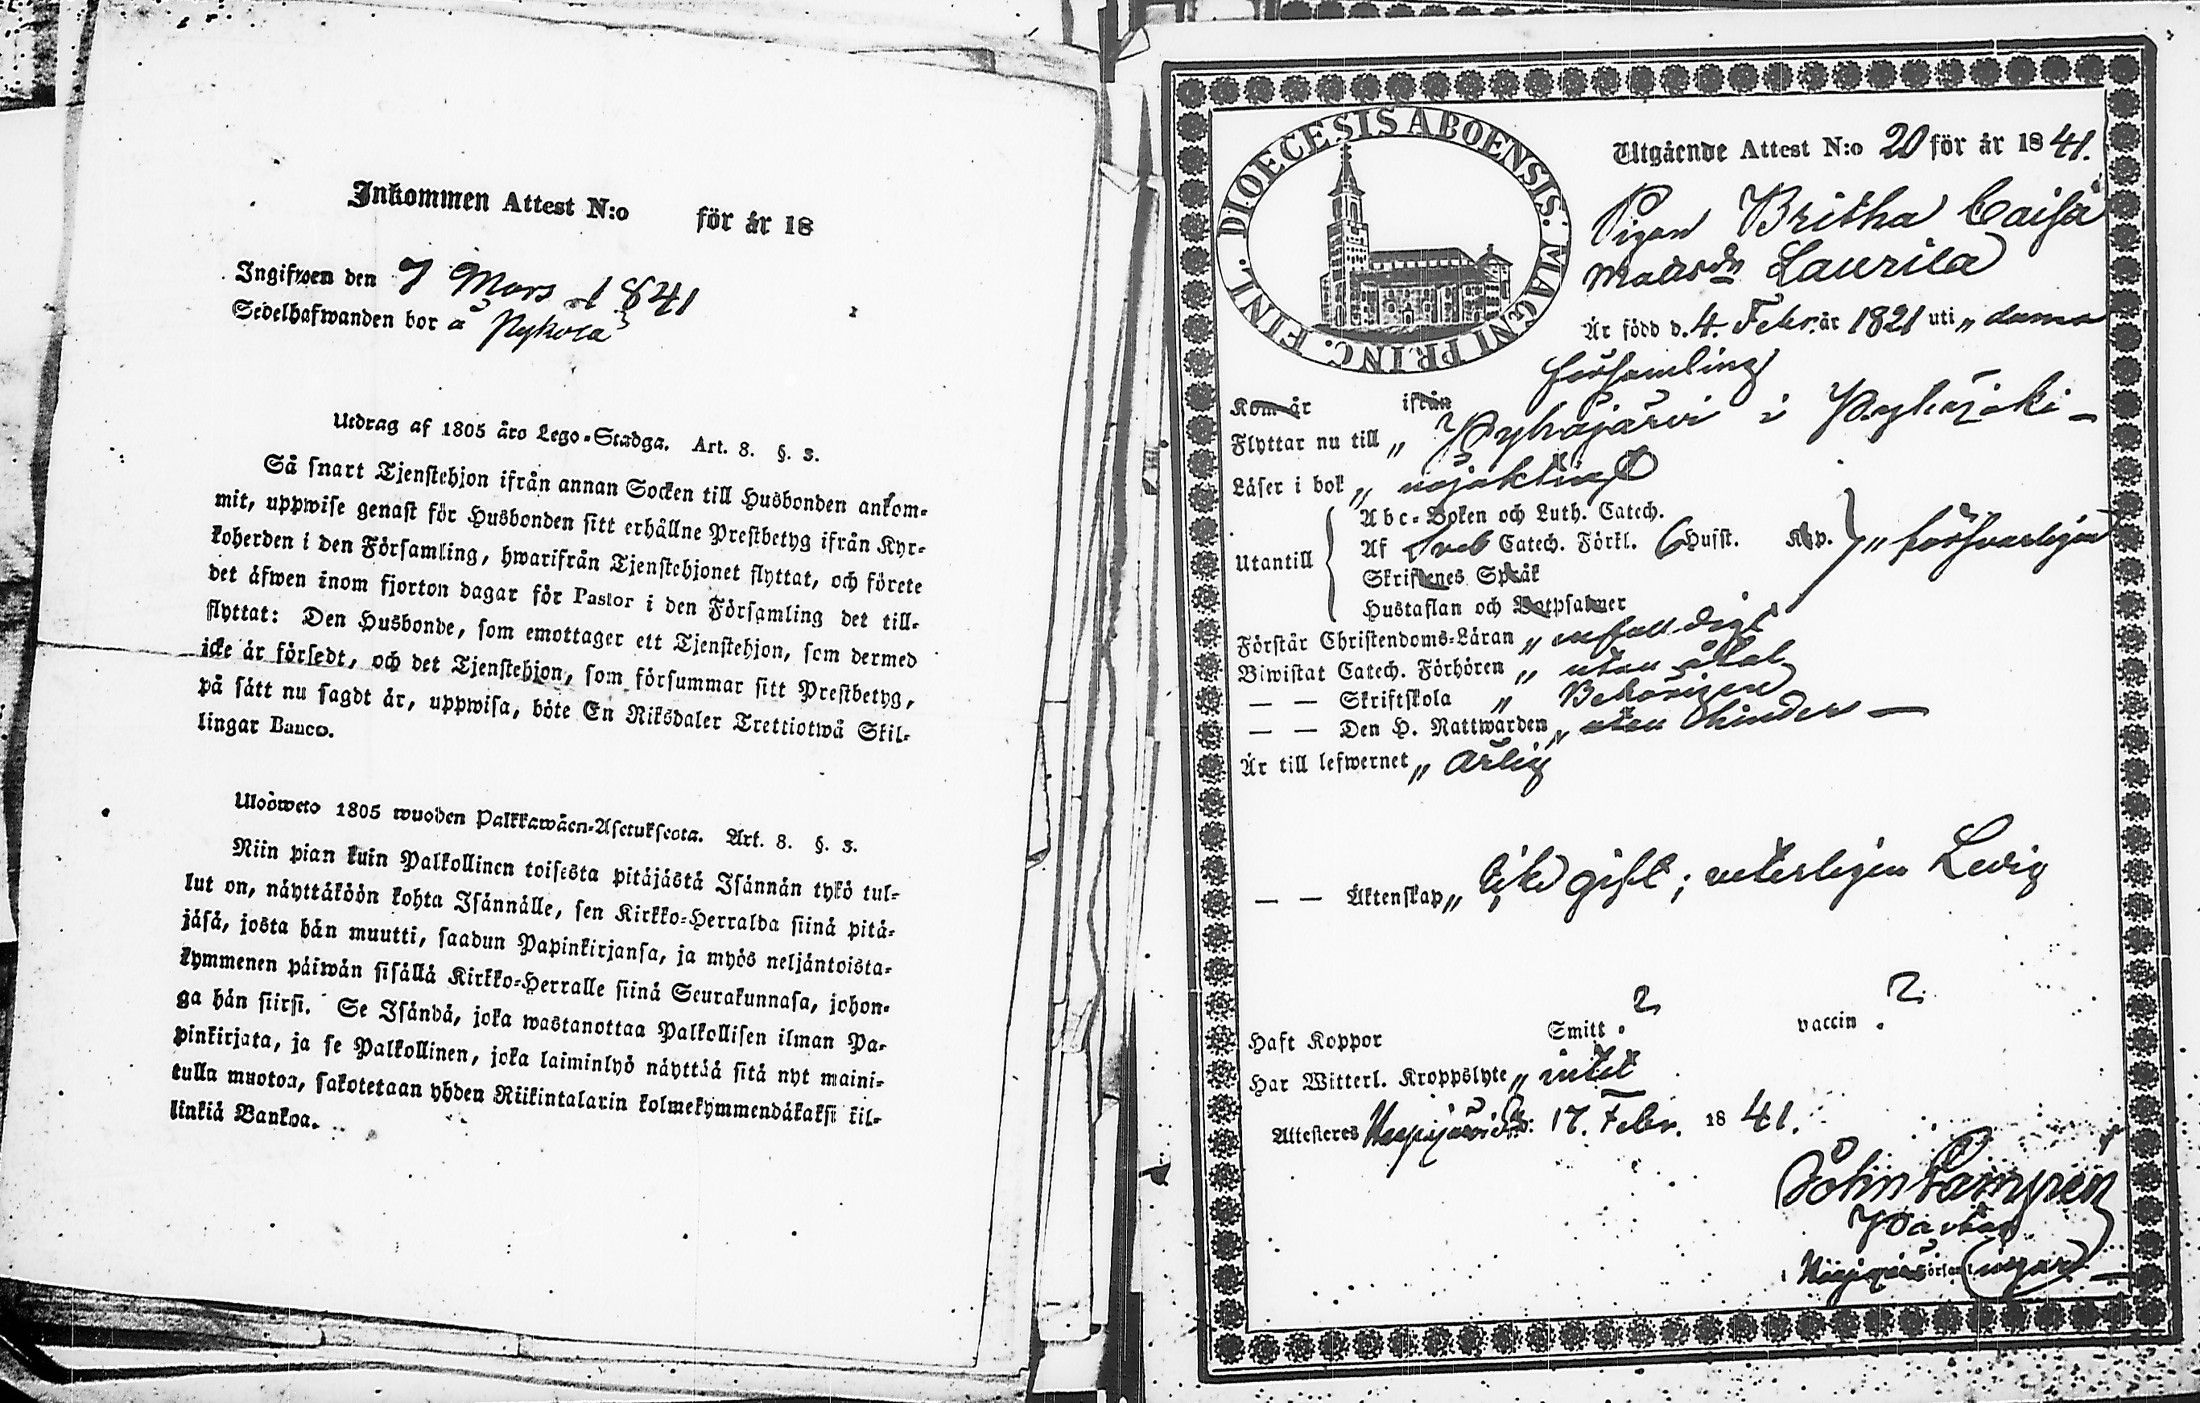 Inkommen Attest N:o för år 18
Ingifwen den 7 Mars 1841
Sedelhafwanden bor å Nykola
Utdrag af 1805 års Lego-Stadga. Art. 8. §. 3.
Så snart Tjenstehjon ifrån annan Socken till Husbonden ankom-
mit, uppwise genast för Husbonden sitt erhållne Prestbetyg ifrån Kyr-
koherden i den Församling, hwarifrån Tjenstehjonet flyttat, och förete
det äfwen inom fjorton dagar för Pastor i den Församling det till-
flyttat: Den Husbonde, som emottager ett Tjenstehjon, som dermed
icke är försedt, och det Tjenstehjon, som försummar sitt Prestbetyg,
på sätt nu sagdt är, uppwisa, böte En Riksdaler Trettiotwå Skil-
lingar Banco.
Ulosweto 1805 wuoden Palkkawäen-Asetuksesta. Art. 8. §. 3.
Niin pian kuin Palkollinen toisesta pitäjästä Isännän tykö tul-
lut on, näyttäköön kohta Isännälle, sen Kirkko-Herralda siinä pitä-
jäsä, josta hän muutti, saadun Papinkirjansa, ja myös neljäntoista-
kymmenen päiwän sisällä Kirkko-Herralle siinä Seurakunnasa, johon-
ga hän siirsi. Se Isändä, joka wastanottaa Palkollisen ilman Pa-
pinkirjata, ja se Palkollinen, joka laiminlyö näyttää sitä nyt maini-
tulla muotoa, sakotetaan yhden Riikintalarin kolmekymmendäkaksi kil-
linkiä Bankoa.
DIOECESIS ABOENSIS. MAGNI PRINC. FINL.
Utgående Attest N:o 20 för år 1841.
Pigan Britha Caisa
Matsdr Laurila
Är född d. 4. Febr. år 1821 uti " denna
församling
Kom år ifrån
Flyttar nu till " Pyhäjärvi i Pyhäjoki
Läser i bok "
Abc-Boken och Luth. Catech.
Utantill Af Sveb Catech. Förkl. 6 Husst. Kap. " försvarligen
Skriftenes Språk
Hustaflan och Botpsalmer
Förstår Christendoms-Läran " enfalldigt
Biwistat Catech. Förhören " utan åtal
— — Skriftskola " Behörigen
— — Den H. Nattwarden " utan hinder —
Är till lefwernet " ärlig
— — Äktenskap " icke gift; veterligen Ledig
Haft Koppor Smitt . ? vaccin . ?
Har Witterl. Kroppslyte " intet
Attesteras d: 17. Febr. 1841.
Pastor